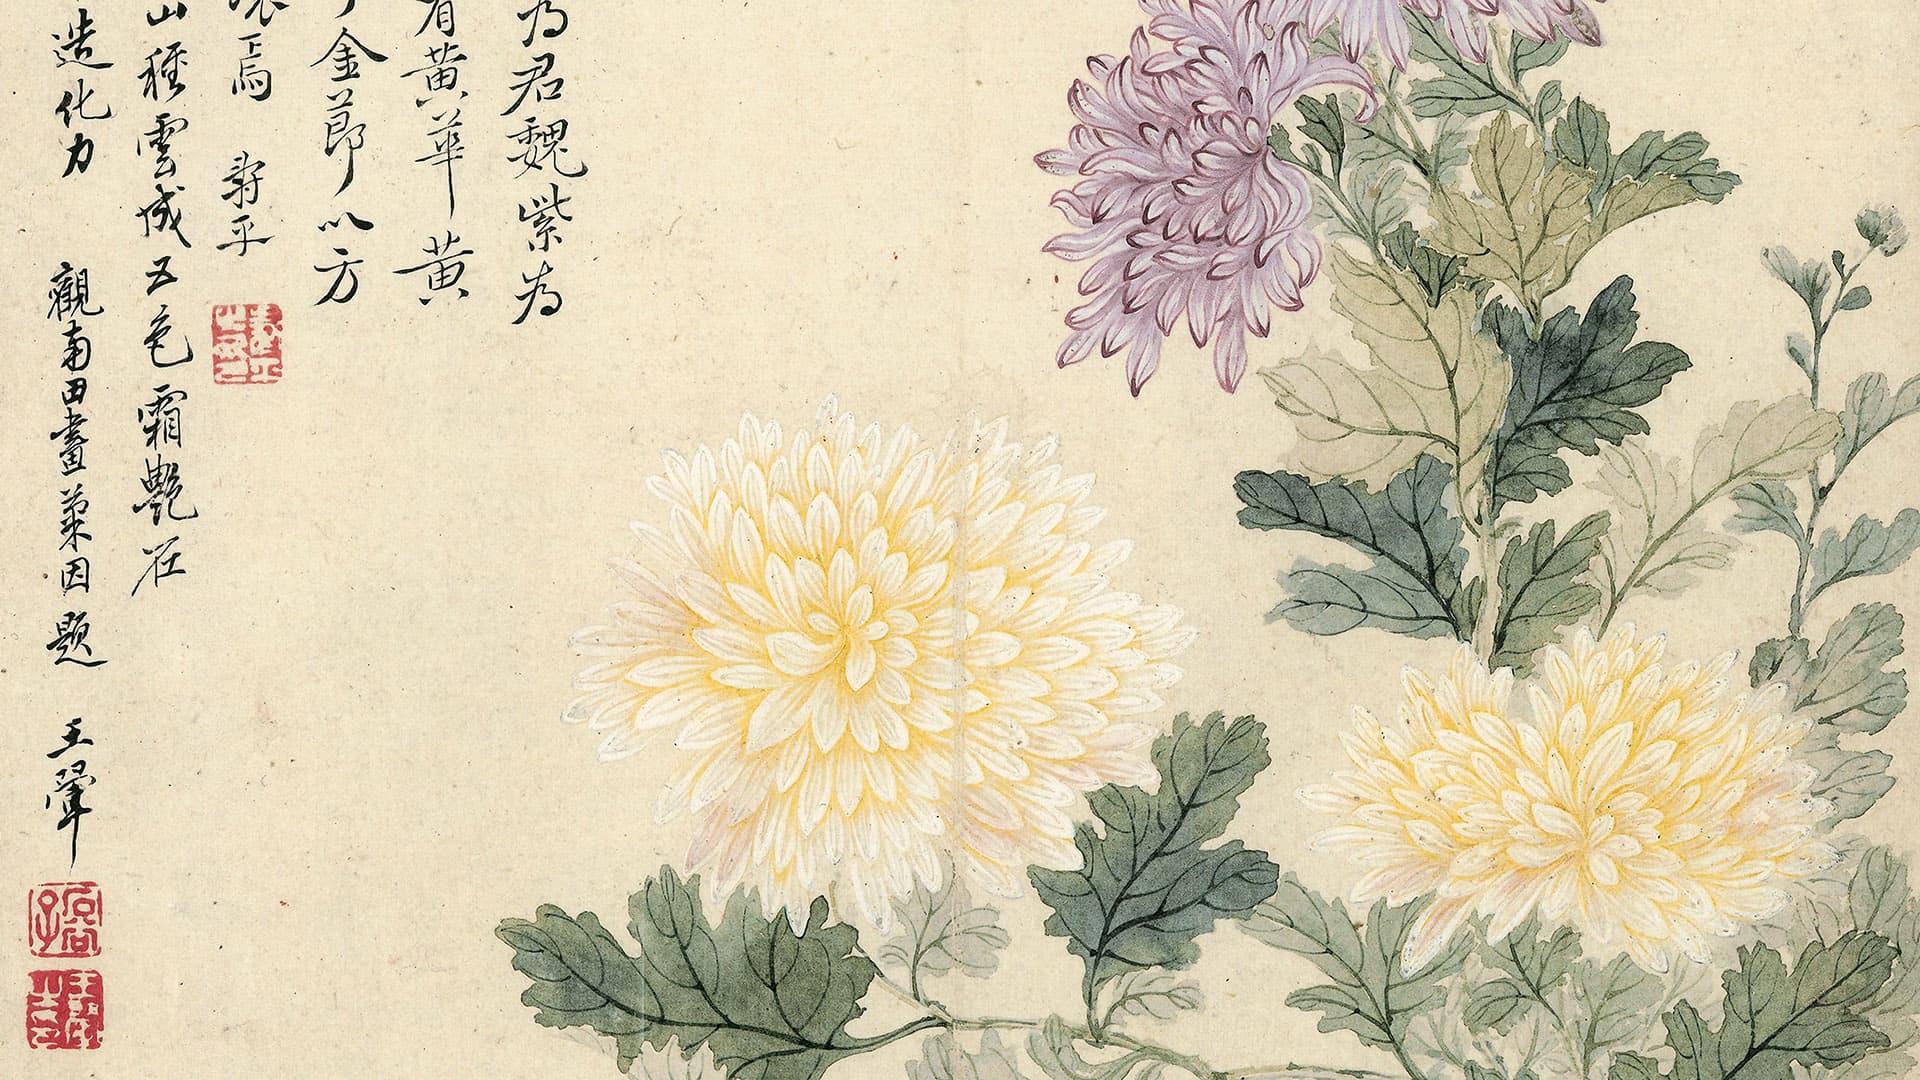 為君魏紫為
有黃華黃
金節以方
焉 壽平
山種雲成五色霜艷在
造化力 觀南田畫菊因題 王翬